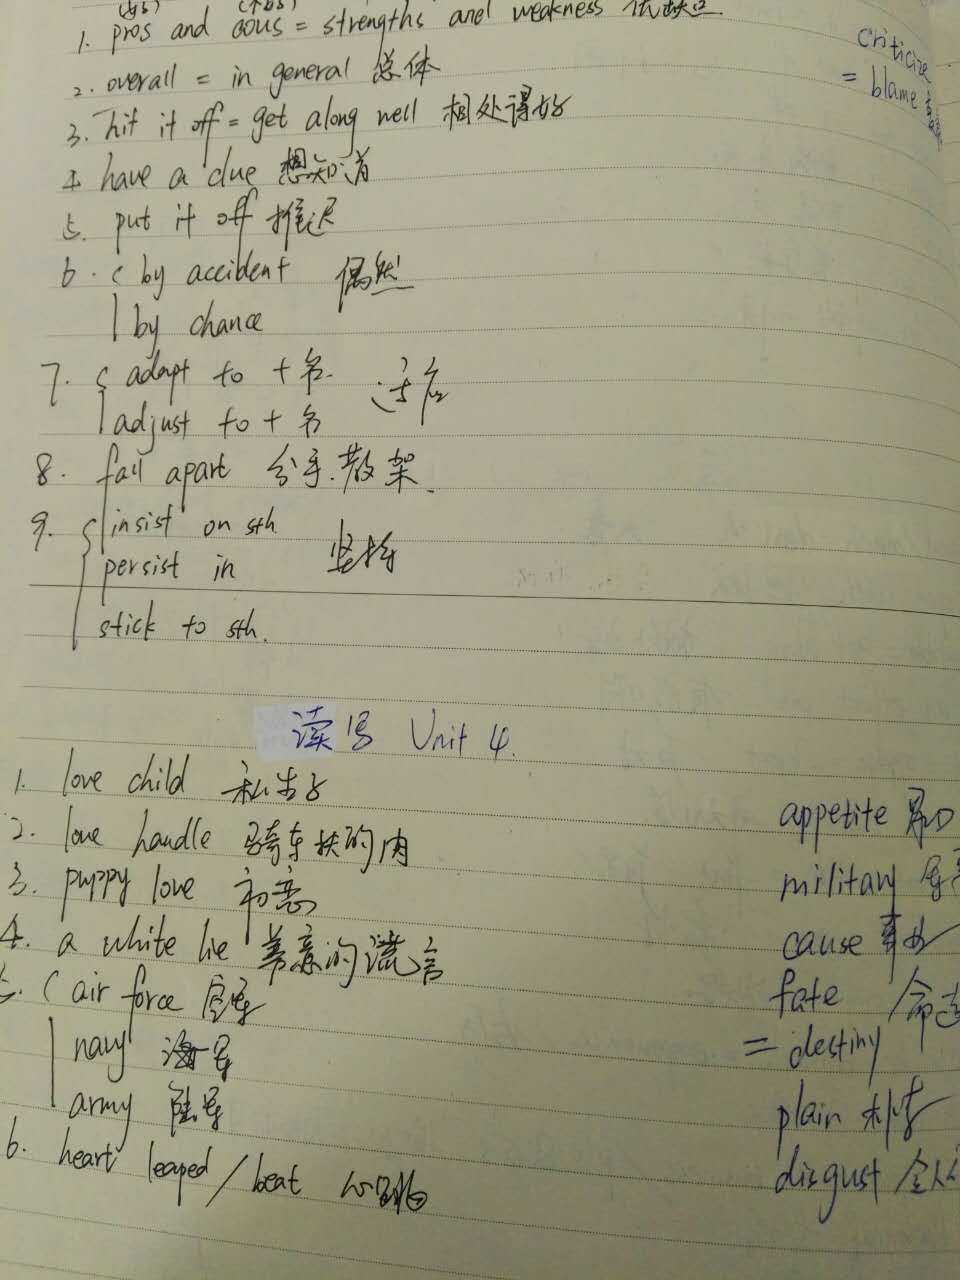 1. pros and cons = strengths and weakness 优缺点
criticize
= blame
2. overall = in general 总体
3. hit it off = get along well 相处得好
4 have a clue 想知道
5. put it off 推迟
6. by accident 偶然
by chance
7. adapt to + 名. 适应
adjust to + 名
8. fall apart 分手.散架.
9. insist on sth
persist in 坚持
stick to sth.
读写 Unit 4.
1. love child 私生子
2. love handle 骑车扶的肉
3. puppy love 初恋
4. a white lie 善意的谎言
5. air force 空军
navy 海军
army 陆军
6. heart leaped / beat 心跳
appetite 胃口
military 军
cause 事业
fate 命运
= destiny
plain 朴素
disgust 令人